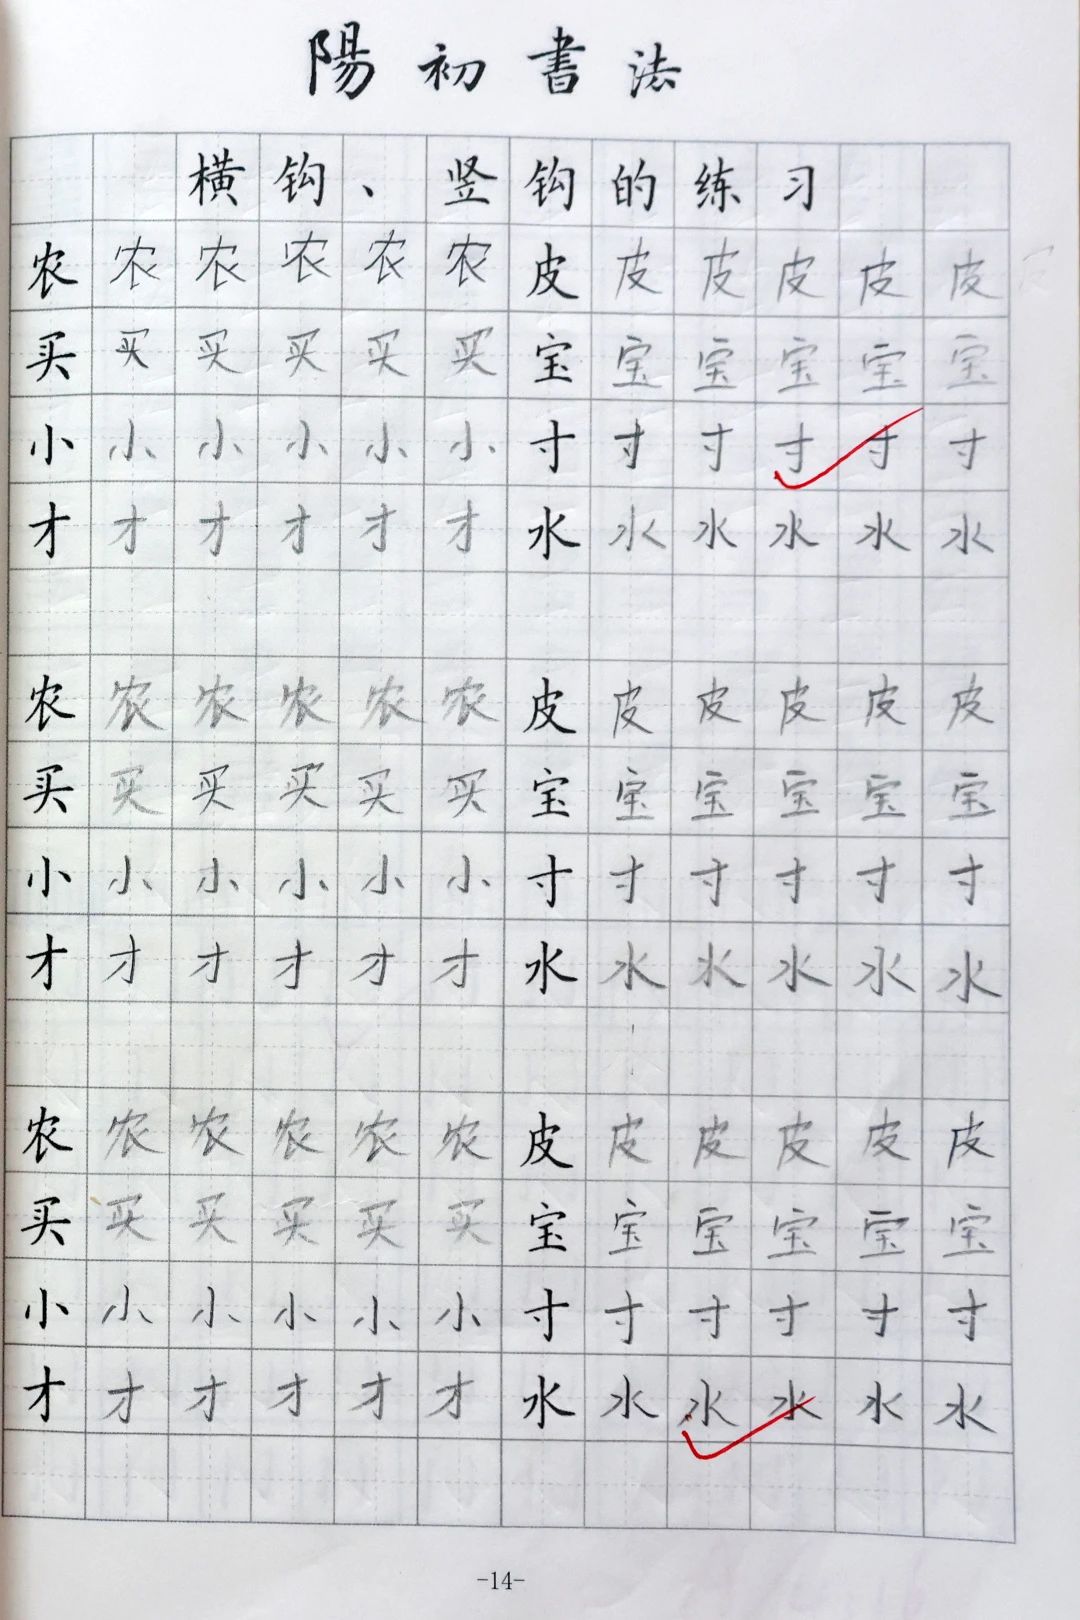 陽初書法
横钩、竖钩的练习
农农农农农农皮皮皮皮皮皮
买买买买买买宝宝宝宝宝宝
小小小小小小寸寸寸寸寸寸
才才才才才才水水水水水水
农农农农农农皮皮皮皮皮皮
买买买买买买宝宝宝宝宝宝
小小小小小小寸寸寸寸寸寸
才才才才才才水水水水水水
农农农农农农皮皮皮皮皮皮
买买买买买买宝宝宝宝宝宝
小小小小小小寸寸寸寸寸寸
才才才才才才水水水水水水
-14-